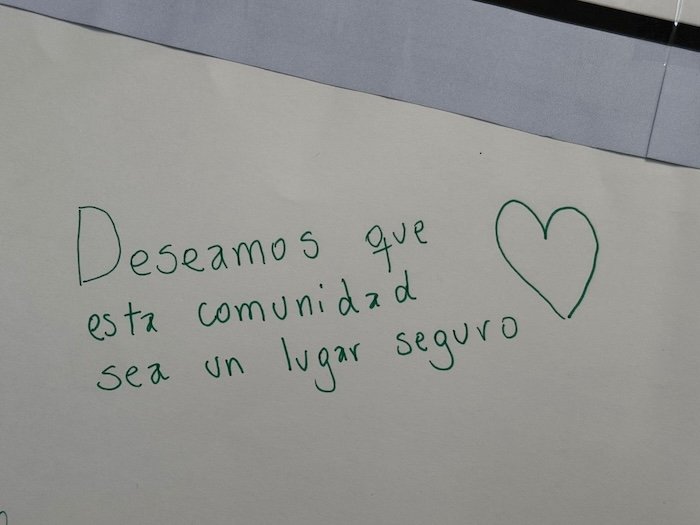 Deseamos que
esta comunidad
sea un lugar seguro